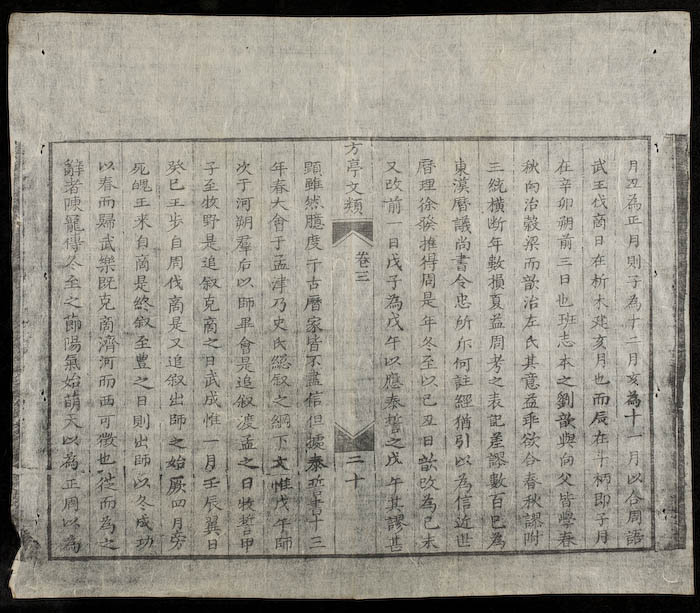 月丑為正月則子為十二月亥為十一月以合周語
武王伐商日在析木建亥月也而辰在斗柄即子月
在辛卯朔前三日也班志本之劉歆與向父皆學春
秋向治穀梁而歆治左氏其意益乖欲合春秋謬附
三統橫断年數損夏益周考之表記差謬數百已為
東漢曆議尚書令忠所斥何註經猶引以為信近世
曆理徐發推得周是年冬至以己丑日歆改為己未
又改前一日戊子為戊午以應泰誓之戊午其謬甚
方亭文類
卷三
二十
顕雖然臆度千古曆家皆不盡信但據泰誓書十三
年春大會于孟津乃史氏總叙之綱下文惟戊午師
次于河朔羣后以師畢會是追叙渡孟之日牧誓甲
子至牧野是追叙克商之日武成惟一月壬辰翼日
癸巳王步自周伐商是又追叙出師之始厥四月旁
死魄王来自商是終叙至豊之日則出師以冬成功
以春而歸武樂既克商濟河而西可徵也從而為之
辭者陳寵得冬至之節陽氣始萌天以為正周以為